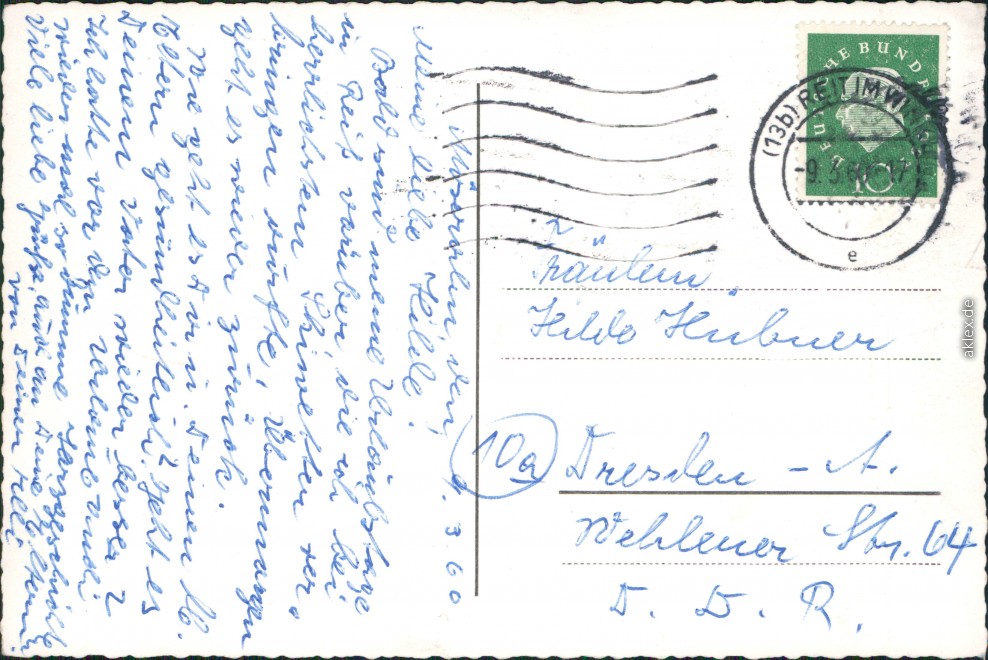 Mösrahn, den 9. 3. 60
Meine liebe Hilde!
Bald sind meine Urlaubstage
in Reit vorüber die ich bei
herrlichstem Skiwetter ver
bringen durfte. Übermorgen
geht es wieder zurück.
Wie geht es Dir u. Deinen lb.
Eltern gesundheitlich? Geht es
Deinem Vater wieder besser?
Ich hatte vor den Urlaub
wieder mal so dumme
Viele liebe Grüße, auch an Deine lb. Eltern,
von Deiner
DEUTSCHE BUNDESPOST
10
(13b) REIT IM WINKL
-9.3.60-17
e
Fräulein
Hilde Hübner
(10a) Dresden - A.
Wehlener Str. 64
D. D. R.
aklex.de